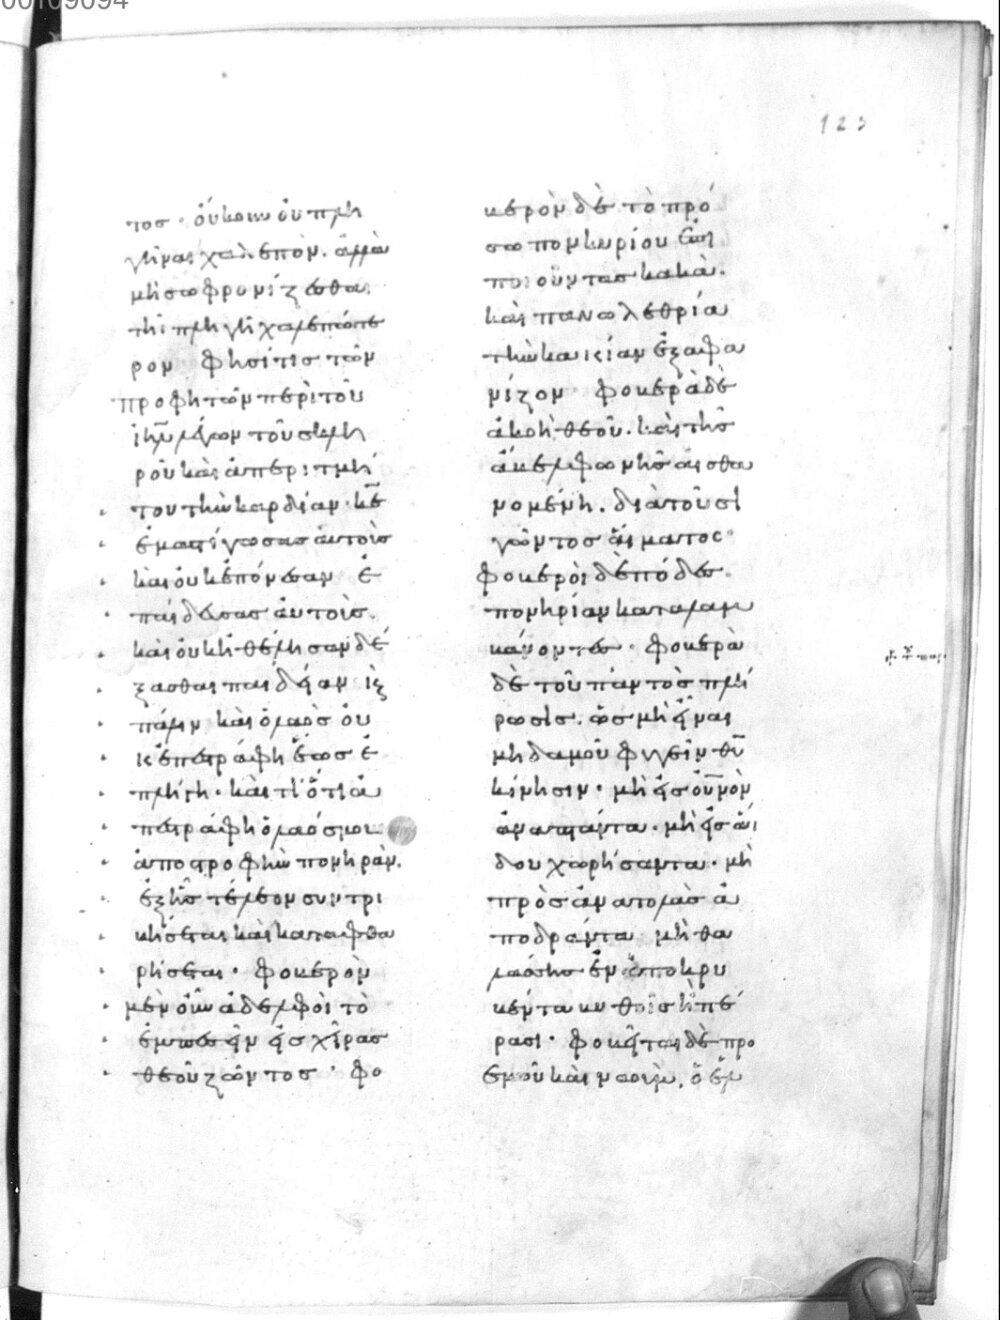 00109094
123
τος · οὐκοῦν οὐ πλη
γῆναι χαλεπόν. ἀλλὰ
μὴ σωφρονίζεσθαι
τῆ πληγῆ χαλεπώτε
ρον φησί τις τῶν
προφητῶν περὶ τοῦ
ιηλ λέγων τοῦ σκλη
ροῦ καὶ ἀπεριτμή
του τὴν καρδίαν · κε
ἐμαστίγωσας αὐτοὺς
καὶ οὐκ ἐπόνεσαν ἐ
παίδευσας αὐτούς.
καὶ οὐκ ἠθέλησαν δέ
ξασθαι παιδείαν κ
πάλιν καὶ ὁ λαὸς οὐ
κ ἐπεστράφη ἕως ἐ
πλήγη · καὶ τί ὅτι ἀ
πεστράφη ὁ λαός μου
ἀποστροφὴν πονηράν.
ἐξ ἧς τέλεον συντρι
βήσεται καὶ καταφθα
ρήσεται · φοβερὸν
μὲν οὖν ἀδελφοὶ τὸ
ἐμπεσεῖν εἰς χεῖρας
θεοῦ ζῶντος · φο
βερὸν δὲ τὸ πρό
σωπον κυρίου ἐπὶ
ποιοῦντας κακὰ ·
καὶ πανωλεθρία
τὴν κακίαν ἐξαφα
νίζον · φοβερὰ δὲ
ἀκοὴ θεοῦ. καὶ τῆς
ἄβελ φωνῆς αἰσθα
νομένη. διὰ τοῦ σι
γῶντος αἵματος ·
φοβεροὶ δὲ πόδες.
πονηρίαν καταλαμ
βάνοντες · φοβερὰ
δὲ τοῦ παντὸς πλή
ρωσις. ὡς μὴ εἶναι
μηδαμοῦ φυγεῖν θυ
κίνησιν · μὴ εἰς οὐνον
ἀναπτάντα · μὴ εἰς ἅι
δου χωρήσαντα · μὴ
πρὸς ἀνατολὰς ἀ
ποδράντα μὴ θα
λάσσης ἐν ἀποκρυ
βέντα βυθοῖς ἢ πέ
ρασι · φοβεῖται δὲ προ
ἐμοῦ καὶ ναοὺμ, ὁ ἐλ